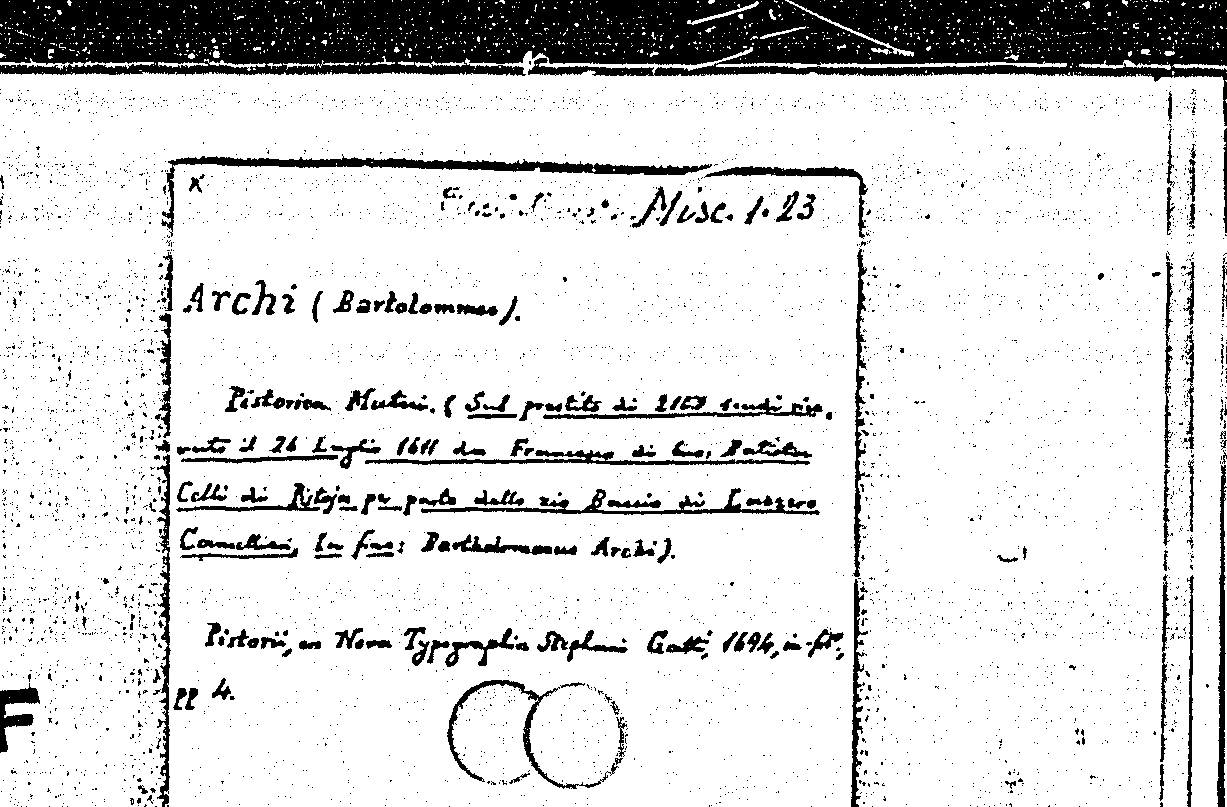 x
Misc. 1. 23
Archi ( Bartolommeo ).
Pistorien. Mutui. ( Sul prestito di scudi rice.
vuto il 26 Luglio 1611 da Francesco di Gio: Batista
Celli di Pistoja per parte dello zio di Lazzero
Camellieri, In fine: Bartholomaeus Archi).
Pistorii, ex Nova Typographia Stephani Gatti, 1694, in-fol°,
pp 4.
F